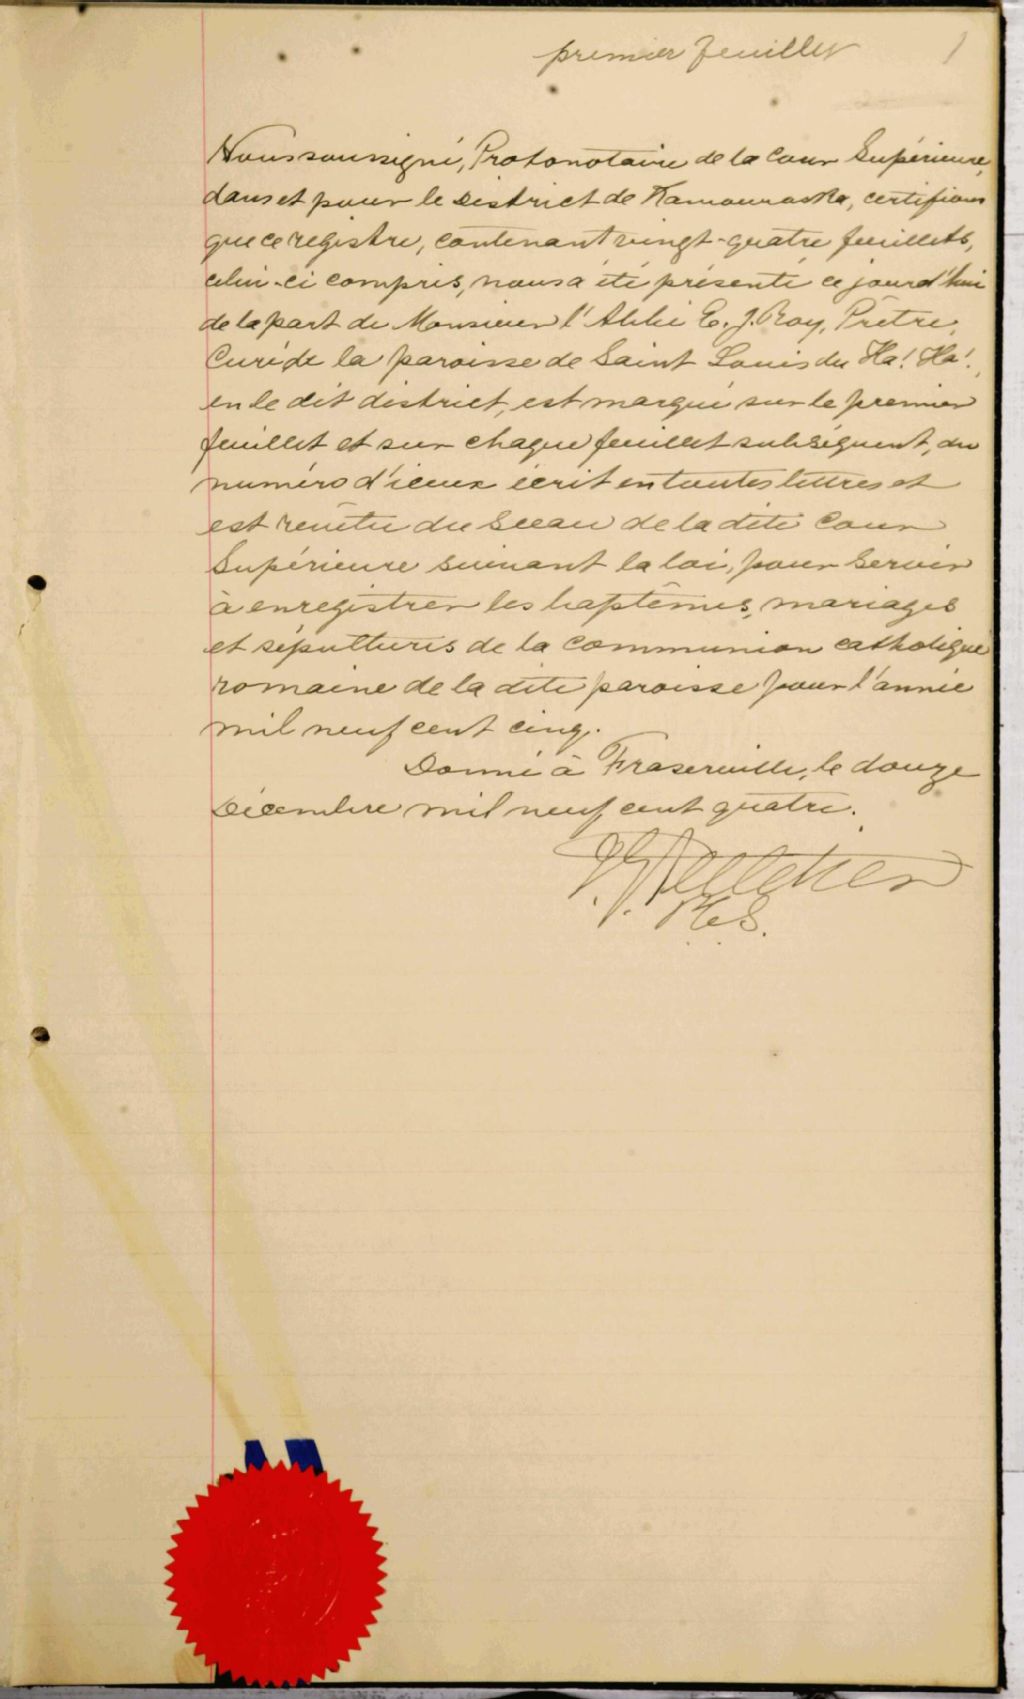 premier feuillet
1
Nous soussigné, Protonotaire de la Cour Supérieure,
dans et pour le District de Kamouraska, certifions
que ce registre, contenant vingt-quatre feuillets,
celui-ci compris, nous a été présenté ce jourd'hui
de la part de Monsieur l'Abbé E. J. Roy, Prêtre,
Curé de la paroisse de Saint Louis du Ha! Ha!,
en le dit district, est marqué sur le premier
feuillet et sur chaque feuillet subséquent, du
numéro d'iceux écrit en toutes lettres et
est revêtu du Sceau de la dite Cour
Supérieure suivant la loi, pour servir
à enregistrer les baptêmes, mariages
et sépultures de la Communion catholique
romaine de la dite paroisse pour l'année
mil neuf cent cinq.
Donné à Fraserville, le douze
Décembre mil neuf cent quatre.
Pelletier
P.C.S.